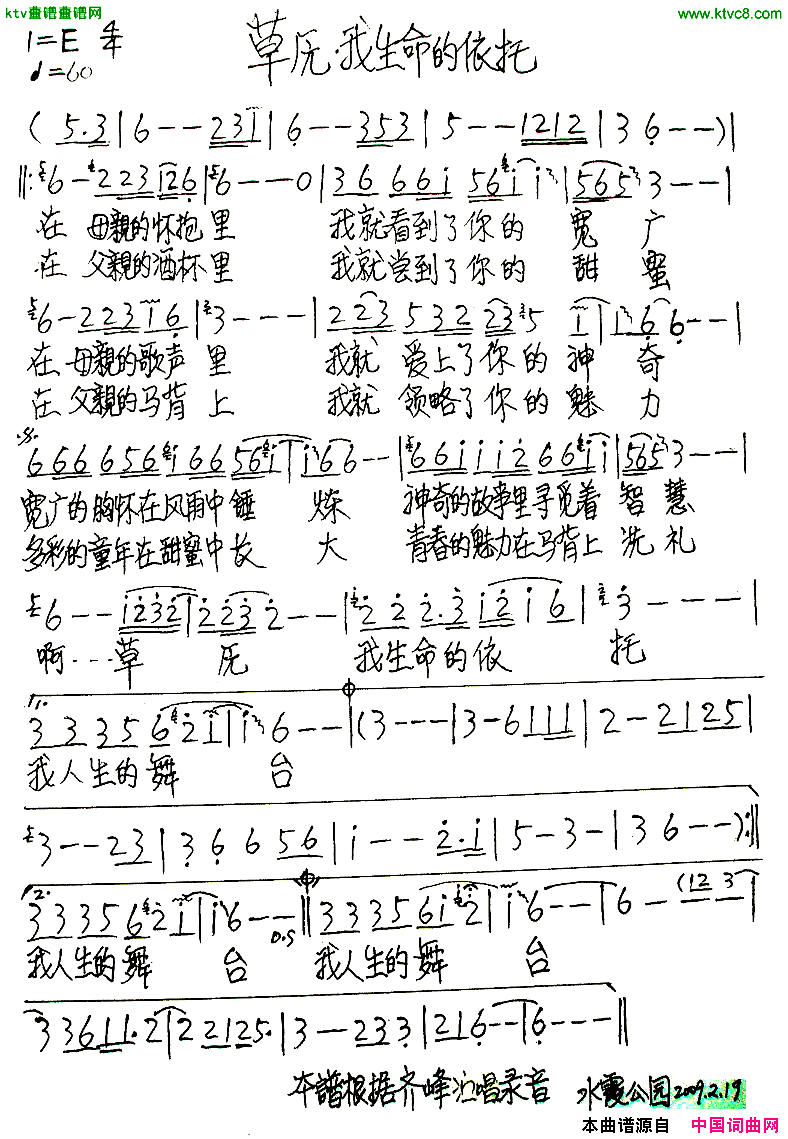 ktv查谱查谱网
www.ktvc8.com
1=E 4/4
♩=60
草原·我生命的依托
( 5.3 | 6 - - 2 3 i | 6 - - 3 5 3 | 5 - - 1 2 1 2 | 3 6 - - ) |
‖: 6 - 2 2 3 1 2 6 | 6 - - 0 | 3 6 6 6 i 5 6 i i | 5 6 5 3 - - |
在 母親的怀抱里 我就看到了你的 宽广
在 父親的酒杯里 我就尝到了你的 甜蜜
6 - 2 2 3 1 6 | 3 - - - | 2 2 3 5 3 2 2 3 5 i | i 6 6 - - |
在 母親的歌声里 我就 爱上了你的神奇
在 父親的马背上 我就 领略了你的魅力
6 6 6 6 6 5 6 i 6 6 5 6 i | i 6 6 - - | 6 6 i i i 2 6 6 i i | 5 6 5 3 - - |
宽广的胸怀在风雨中锤炼 神奇的故事里寻觅着智慧
多彩的童年在甜蜜中长大 青春的魅力在马背上洗礼
6 - - i 2 3 2 | 2 2 3 2 - - | 2 2 2.3 i 2 i 6 | 3 - - - |
啊···草原 我生命的依托
1.
3 3 3 5 6 2 i | i 6 - - | (3 - - - | 3 - 6 1 1 1 | 2 - 2 1 2 5 |
我人生的舞台
3 - - 2 3 | 3 6 6 5 6 | i - - 2.i | 5 - 3 - | 3 6 - - ) :‖
2.
3 3 3 5 6 2 i | i 6 - - ‖ 3 3 3 5 6 i 2 | i 6 - - | 6 - (1 2 3 |
D.S
我人生的舞台 我人生的舞台
3 3 6 1 1. 2 | 2 2 1 2 5. | 3 - 2 3 3 | 2 1 6 - - | 6 - - - ‖
本譜根据齐峰演唱录音 水霞公园2009.2.19
本曲谱源自 中国词曲网